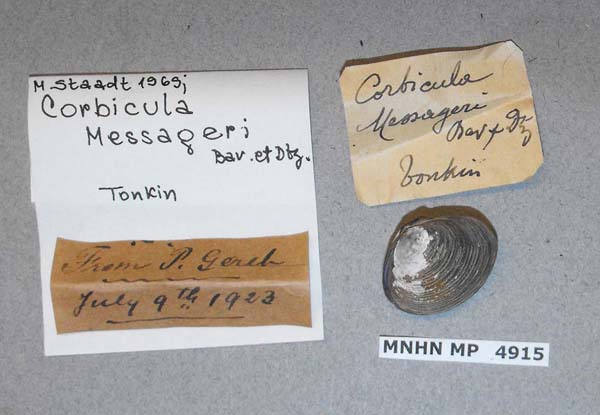 M. Staadt 1969;
Corbicula
Messageri
Bav. et Dtz.
Tonkin
From P. Gereh
July 9th 1923
Corbicula
Messageri
Bav & Dtz
Tonkin
MNHN MP 4915